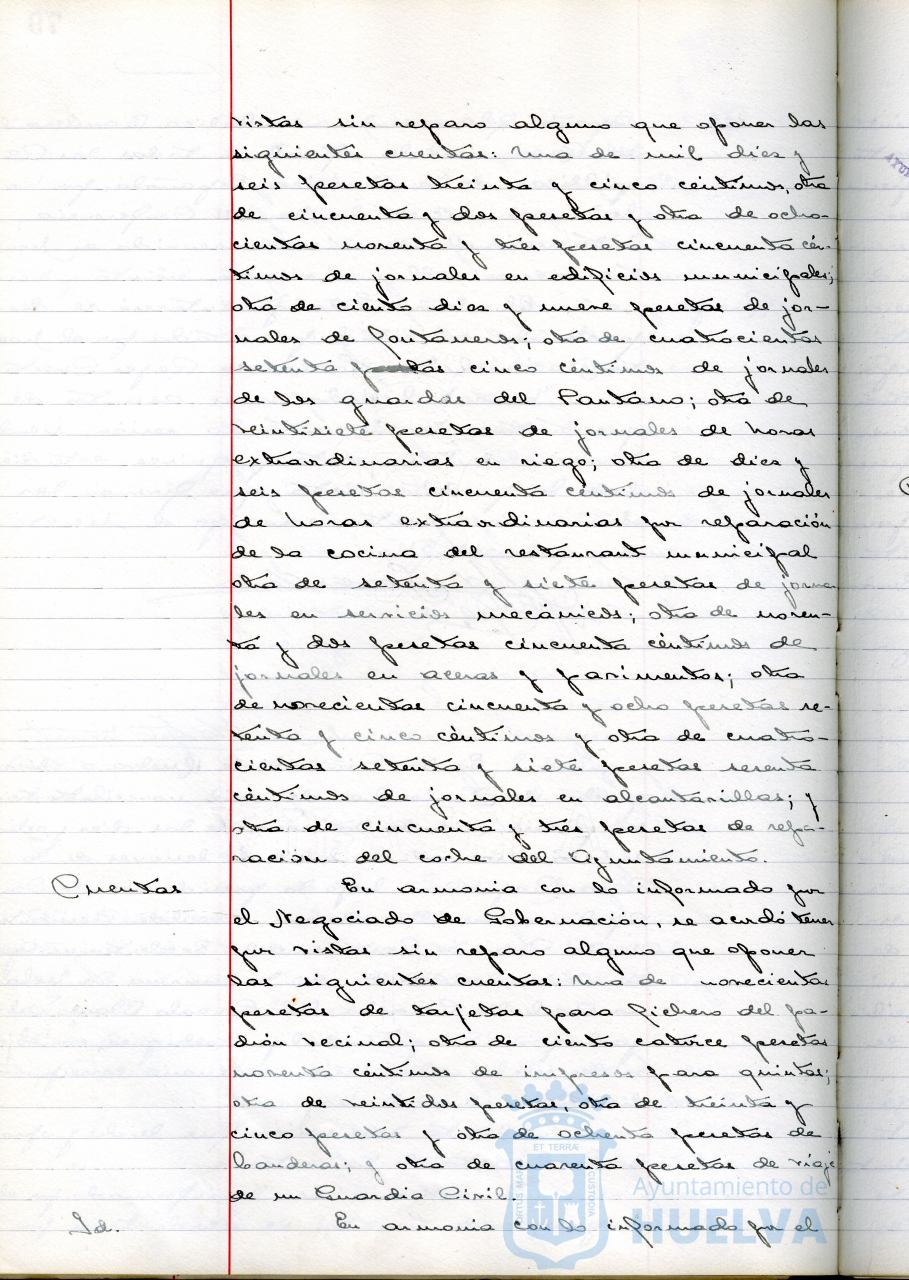 vistas sin reparo alguno que oponer las
siguientes cuentas: una de mil diez y
seis pesetas treinta y cinco céntimos, otra
de cincuenta y dos pesetas y otra de ocho-
cientas noventa y tres pesetas cincuenta cén-
timos de jornales en edificios municipales;
otra de ciento diez y nueve pesetas de jor-
nales de fontaneros; otra de cuatrocientas
setenta pesetas cinco céntimos de jornales
de los guardas del Pantano; otra de
veintisiete pesetas de jornales de horas
extraordinarias en riego; otra de diez y
seis pesetas cincuenta céntimos de jornales
de horas extraordinarias por reparación
de la cocina del restaurant municipal
otra de setenta y siete pesetas de jorna-
les en servicios mecánicos; otra de noven-
ta y dos pesetas cincuenta céntimos de
jornales en aceras y pavimentos; otra
de novecientas cincuenta y ocho pesetas se-
tenta y cinco céntimos y otra de cuatro-
cientas setenta y siete pesetas sesenta
céntimos de jornales en alcantarillas; y
otra de cincuenta y tres pesetas de repa-
ración del coche del Ayuntamiento.
Cuentas En armonia con lo informado por
el Negociado de Gobernación, se acordó tener
por vistas sin reparo alguno que oponer
las siguientes cuentas: una de novecientas
pesetas de tarjetas para fichero del pa-
drón vecinal; otra de ciento catorce pesetas
noventa céntimos de impresos para quintas;
otra de veintidos pesetas, otra de treinta y
cinco pesetas y otra de ochenta pesetas de
banderas; y otra de cuarenta pesetas de viaje
de un Guardia Civil.
Id. En armonia con lo informado por el
ET TERRÆ
PORTUS MARIS
CUSTODIA
Ayuntamiento de
HUELVA